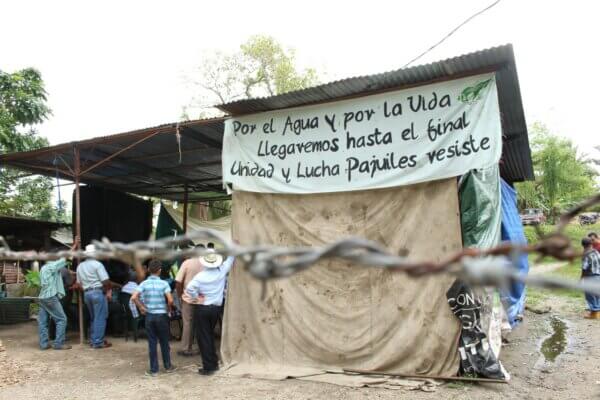 Por el Agua y por la Vida
Llegaremos hasta el final
Unidad y Lucha Pajuiles resiste
CON